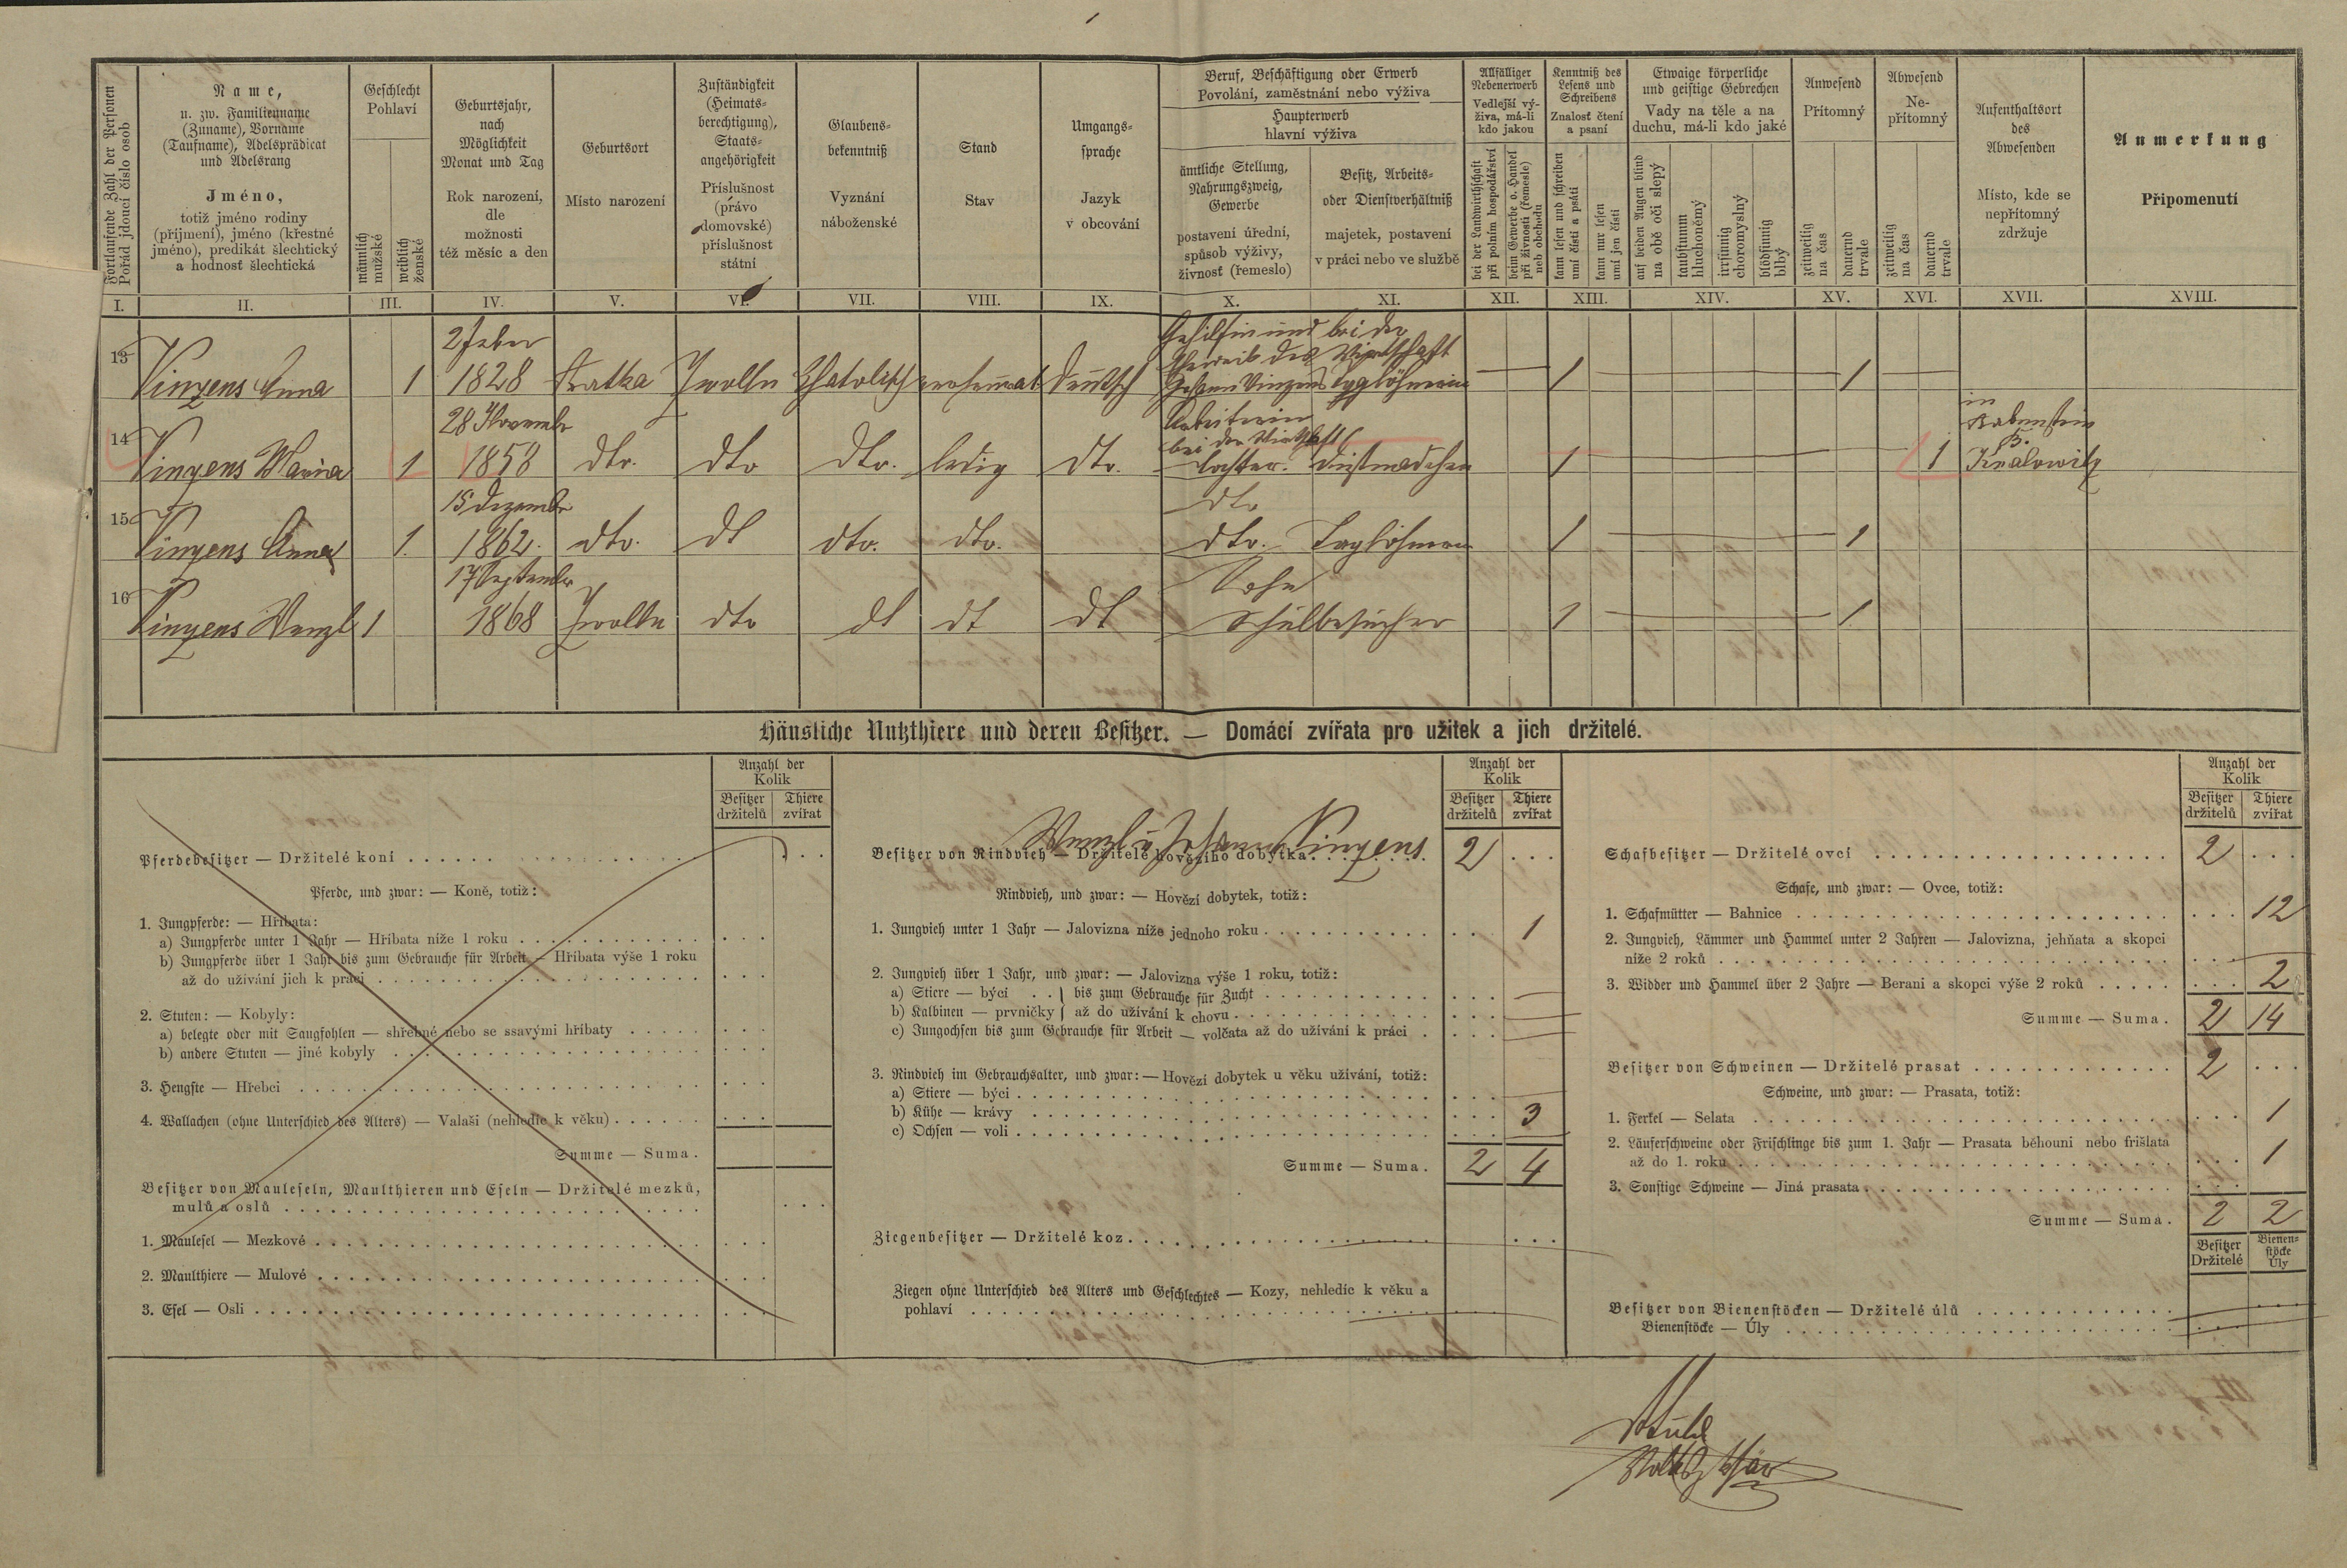 Fortlaufende Zahl der Personen
Pořád jdoucí číslo osob
Name,
u. zw. Familienname
(Zuname), Vorname
(Taufname), Adelsprädicat
und Adelsrang
Jméno,
totiž jméno rodiny
(příjmení), jméno (křestné
jméno), predikát šlechtický
a hodnosť šlechtická
Geschlecht
Pohlaví
männlich
mužské
weiblich
ženské
Geburtsjahr,
nach
Möglichkeit
Monat und Tag
Rok narození,
dle
možnosti
též měsíc a den
Geburtsort
Místo narození
Zuständigkeit
(Heimats-
berechtigung),
Staats-
angehörigkeit
Příslušnost
(právo
domovské)
příslušnost
státní
Glaubens-
bekenntniß
Vyznání
náboženské
Stand
Stav
Umgangs-
sprache
Jazyk
v obcování
Beruf, Beschäftigung oder Erwerb
Povolání, zaměstnání nebo výživa
Haupterwerb
hlavní výživa
ämtliche Stellung,
Nahrungszweig,
Gewerbe
postavení úřední,
spůsob výživy,
živnosť (řemeslo)
Besitz, Arbeits-
oder Dienstverhältniß
majetek, postavení
v práci nebo ve službě
Allfälliger
Nebenerwerb
Vedlejší vý-
živa, má-li
kdo jakou
bei der Landwirthschaft
při polním hospodářství
beim Gewerbe o. Handel
při živnosti (řemesle)
neb obchodu
Kenntniß des
Lesens und
Schreibens
Znalosť čtení
a psaní
kann lesen und schreiben
umí čísti a psáti
kann nur lesen
umí jen čísti
Etwaige körperliche
und geistige Gebrechen
Vady na těle a na
duchu, má-li kdo jaké
auf beiden Augen blind
na obě oči slepý
taubstumm
hluchoněmý
irrsinnig
choromyslný
blödsinnig
blbý
Anwesend
Přítomný
zeitweilig
na čas
dauernd
trvale
Abwesend
Ne-
přítomný
zeitweilig
na čas
dauernd
trvale
Aufenthaltsort
des
Abwesenden
Místo, kde se
nepřítomný
zdržuje
Anmerkung
Připomenutí
I. II. III. IV. V. VI. VII. VIII. IX. X. XI. XII. XIII. XIV. XV. XVI. XVII. XVIII.
2 Feber
Gehilfin und bei der
Eheweib des Wirtschaft
13 Vinzens Anna 1 1828 Kratka Zwolln Khatolisch Deutsch Johann Vinzens Taglöhnerin 1 1
28 Novembr
Arbeiterin
bei der Wirtschaft
in
Rabenstein
B.
14 Vinzens Maria 1 1858 dto. dto dto. ledig dto. Tochter. Dinstmädchen 1 1 Kralowitz
15 Dezembr
dto
15 Vinzens Anna 1. 1862. dto. dt dto. dto. dto. Taglöhnerin 1 1
17 Septembr
Sohn
16 Vinzens Wenzl 1 1868 Zwolln dto dt dt dt Schulbesucher 1 1
Häusliche Nutzthiere und deren Besitzer. — Domácí zvířata pro užitek a jich držitelé.
Anzahl der
Kolik
Besitzer
držitelů
Thiere
zvířat
Pferdebesitzer — Držitelé koní
Pferde, und zwar: — Koně, totiž:
1. Jungpferde: — Hříbata:
a) Jungpferde unter 1 Jahr — Hříbata níže 1 roku
b) Jungpferde über 1 Jahr bis zum Gebrauche für Arbeit — Hříbata výše 1 roku
až do užívání jich k práci
2. Stuten: — Kobyly:
a) belegte oder mit Saugfohlen — shřebné nebo se ssavými hříbaty
b) andere Stuten — jiné kobyly
3. Hengste — Hřebci
4. Wallachen (ohne Unterschied des Alters) — Valaši (nehledíc k věku)
Summe — Suma.
Besitzer von Mauleseln, Maulthieren und Eseln — Držitelé mezků,
mulů a oslů
1. Maulesel — Mezkové
2. Maulthiere — Mulové
3. Esel — Osli
Anzahl der
Kolik
Besitzer
držitelů
Thiere
zvířat
Wenzl u Johann Vinzens
Besitzer von Rindvieh — Držitelé hovězího dobytka 2
Rindvieh, und zwar: — Hovězí dobytek, totiž:
1. Jungvieh unter 1 Jahr — Jalovizna níže jednoho roku 1
2. Jungvieh über 1 Jahr, und zwar: — Jalovizna výše 1 roku, totiž:
a) Stiere — býci } bis zum Gebrauche für Zucht
b) Kalbinen — prvničky } až do užívání k chovu
c) Jungochsen bis zum Gebrauche für Arbeit — volčata až do užívání k práci
3. Rindvieh im Gebrauchsalter, und zwar: — Hovězí dobytek u věku užívání, totiž:
a) Stiere — býci
b) Kühe — krávy 3
c) Ochsen — voli
Summe — Suma. 2 4
Ziegenbesitzer — Držitelé koz
Ziegen ohne Unterschied des Alters und Geschlechtes — Kozy, nehledíc k věku a
pohlaví
Anzahl der
Kolik
Besitzer
držitelů
Thiere
zvířat
Schafbesitzer — Držitelé ovcí 2
Schafe, und zwar: — Ovce, totiž:
1. Schafmütter — Bahnice 12
2. Jungvieh, Lämmer und Hammel unter 2 Jahren — Jalovizna, jehňata a skopci
níže 2 roků
3. Widder und Hammel über 2 Jahre — Berani a skopci výše 2 roků 2
Summe — Suma. 2 14
Besitzer von Schweinen — Držitelé prasat 2
Schweine, und zwar: — Prasata, totiž:
1. Ferkel — Selata 1
2. Läuferschweine oder Frischlinge bis zum 1. Jahr — Prasata běhouni nebo frišlata
až do 1. roku 1
3. Sonstige Schweine — Jiná prasata
Summe — Suma. 2 2
Besitzer
Držitelé
Bienen-
stöcke
Úly
Besitzer von Bienenstöcken — Držitelé úlů
Bienenstöcke — Úly